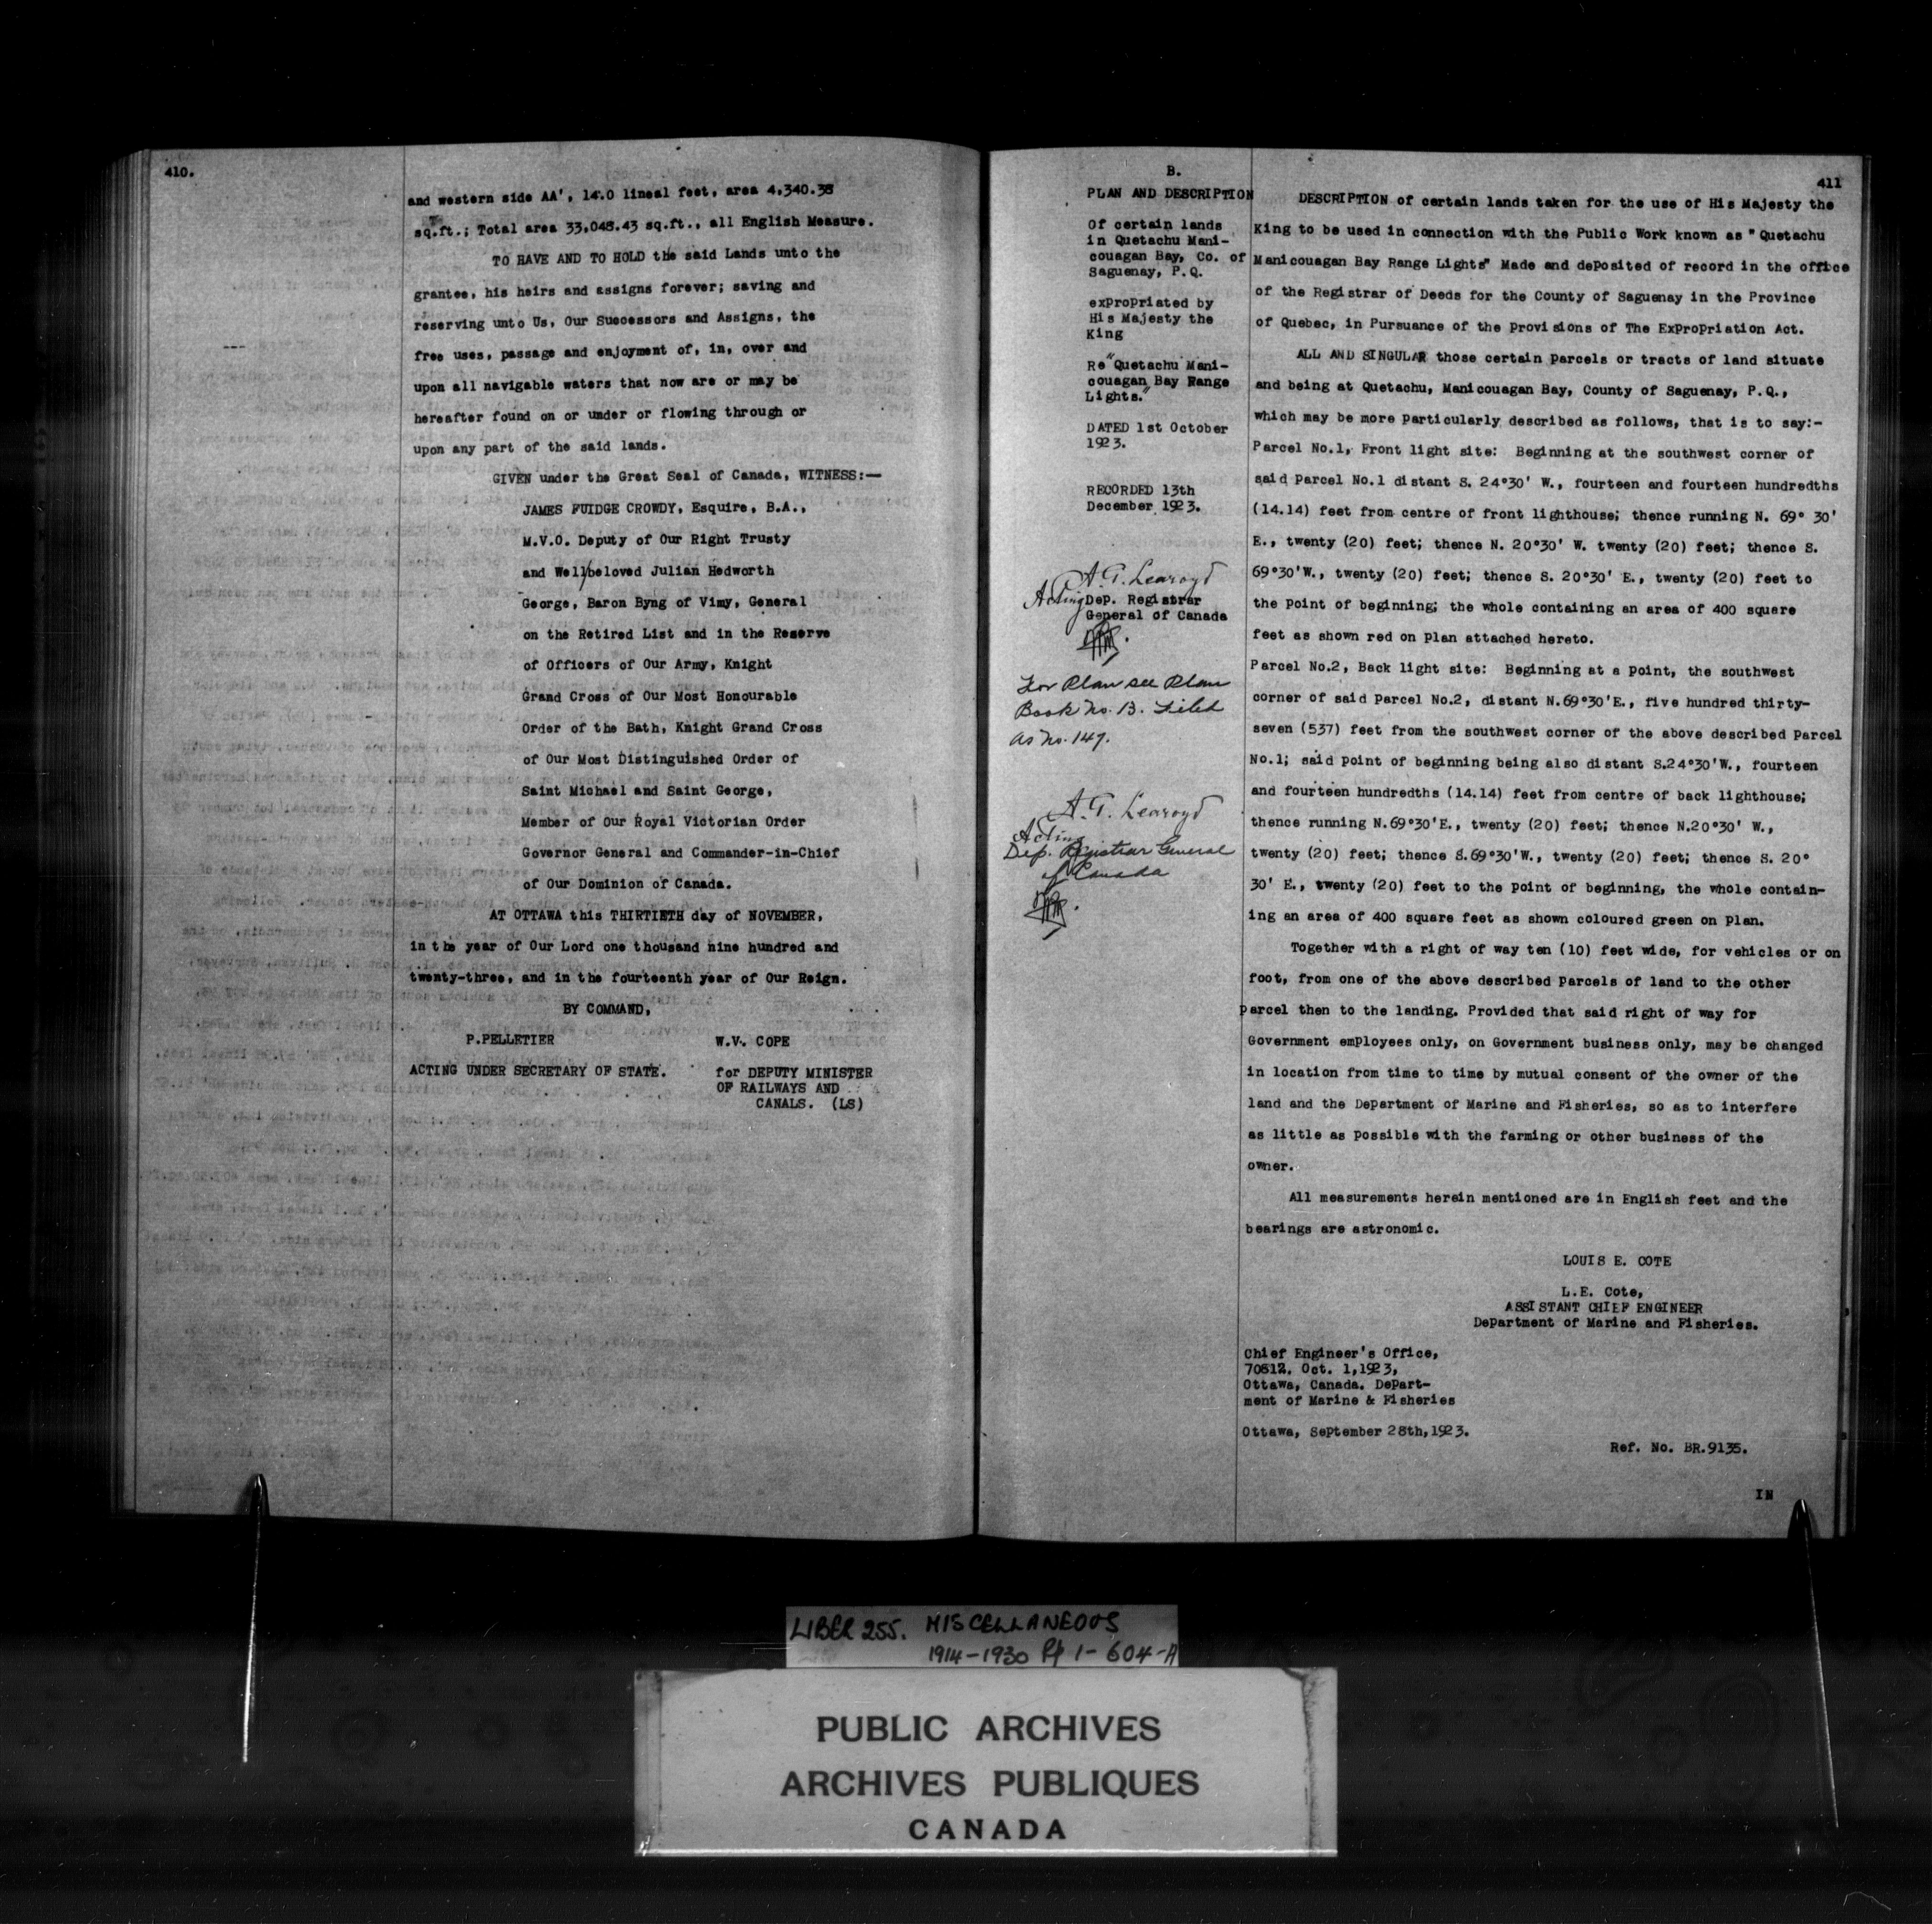 410.
and western side AA', 14.0 lineal feet, area 4,340.38
sq.ft.; Total area 33,048.43 sq.ft., all English Measure.
TO HAVE AND TO HOLD the said Lands unto the
grantee, his heirs and assigns forever; saving and
reserving unto Us, Our Successors and Assigns, the
free uses, passage and enjoyment of, in, over and
upon all navigable waters that now are or may be
hereafter found on or under or flowing through or
upon any part of the said lands.
GIVEN under the Great Seal of Canada, WITNESS:—
JAMES FUIDGE CROWDY, Esquire, B.A.,
M.V.O. Deputy of Our Right Trusty
and Well/beloved Julian Hedworth
George, Baron Byng of Vimy, General
on the Retired List and in the Reserve
of Officers of Our Army, Knight
Grand Cross of Our Most Honourable
Order of the Bath, Knight Grand Cross
of Our Most Distinguished Order of
Saint Michael and Saint George,
Member of Our Royal Victorian Order
Governor General and Commander-in-Chief
of Our Dominion of Canada.
AT OTTAWA this THIRTIETH day of NOVEMBER,
in the year of Our Lord one thousand nine hundred and
twenty-three, and in the fourteenth year of Our Reign.
BY COMMAND,
P.PELLETIER W.V. COPE
ACTING UNDER SECRETARY OF STATE. for DEPUTY MINISTER
OF RAILWAYS AND
CANALS. (LS)
B.
PLAN AND DESCRIPTION
Of certain lands
in Quetachu Mani-
couagan Bay, Co. of
Saguenay, P.Q.
expropriated by
His Majesty the
King
Re "Quetachu Mani-
couagan Bay Range
Lights."
DATED 1st October
1923.
RECORDED 13th
December 1923.
A.G. Learoyd
Acting Dep. Registrar
General of Canada
For Plan see Plan
Book No. 13. Filed
as No. 147.
A.G. Learoyd
Acting
Dep. Registrar General
of Canada
411
DESCRIPTION of certain lands taken for the use of His Majesty the
King to be used in connection with the Public Work known as "Quetachu
Manicouagan Bay Range Lights" Made and deposited of record in the office
of the Registrar of Deeds for the County of Saguenay in the Province
of Quebec, in Pursuance of the Provisions of The Expropriation Act.
ALL AND SINGULAR those certain parcels or tracts of land situate
and being at Quetachu, Manicouagan Bay, County of Saguenay, P.Q.,
which may be more particularly described as follows, that is to say:-
Parcel No.1, Front light site: Beginning at the southwest corner of
said Parcel No.1 distant S. 24°30' W., fourteen and fourteen hundredths
(14.14) feet from centre of front lighthouse; thence running N. 69° 30'
E., twenty (20) feet; thence N. 20°30' W. twenty (20) feet; thence S.
69°30'W., twenty (20) feet; thence S. 20°30' E., twenty (20) feet to
the point of beginning; the whole containing an area of 400 square
feet as shown red on plan attached hereto.
Parcel No.2, Back light site: Beginning at a point, the southwest
corner of said Parcel No.2, distant N.69°30'E., five hundred thirty-
seven (537) feet from the southwest corner of the above described Parcel
No.1; said point of beginning being also distant S.24°30'W., fourteen
and fourteen hundredths (14.14) feet from centre of back lighthouse;
thence running N.69°30'E., twenty (20) feet; thence N.20°30' W.,
twenty (20) feet; thence S.69°30'W., twenty (20) feet; thence S. 20°
30' E., twenty (20) feet to the point of beginning, the whole contain-
ing an area of 400 square feet as shown coloured green on plan.
Together with a right of way ten (10) feet wide, for vehicles or on
foot, from one of the above described parcels of land to the other
parcel then to the landing. Provided that said right of way for
Government employees only, on Government business only, may be changed
in location from time to time by mutual consent of the owner of the
land and the Department of Marine and Fisheries, so as to interfere
as little as possible with the farming or other business of the
owner.
All measurements herein mentioned are in English feet and the
bearings are astronomic.
LOUIS E. COTE
L.E. Cote,
ASSISTANT CHIEF ENGINEER
Department of Marine and Fisheries.
Chief Engineer's Office,
70812. Oct. 1,1923,
Ottawa, Canada. Depart-
ment of Marine & Fisheries
Ottawa, September 28th,1923.
Ref. No. BR.9135.
IN
LIBER 255. MISCELLANEOUS
1914-1930 Pp 1-604-A
PUBLIC ARCHIVES
ARCHIVES PUBLIQUES
CANADA